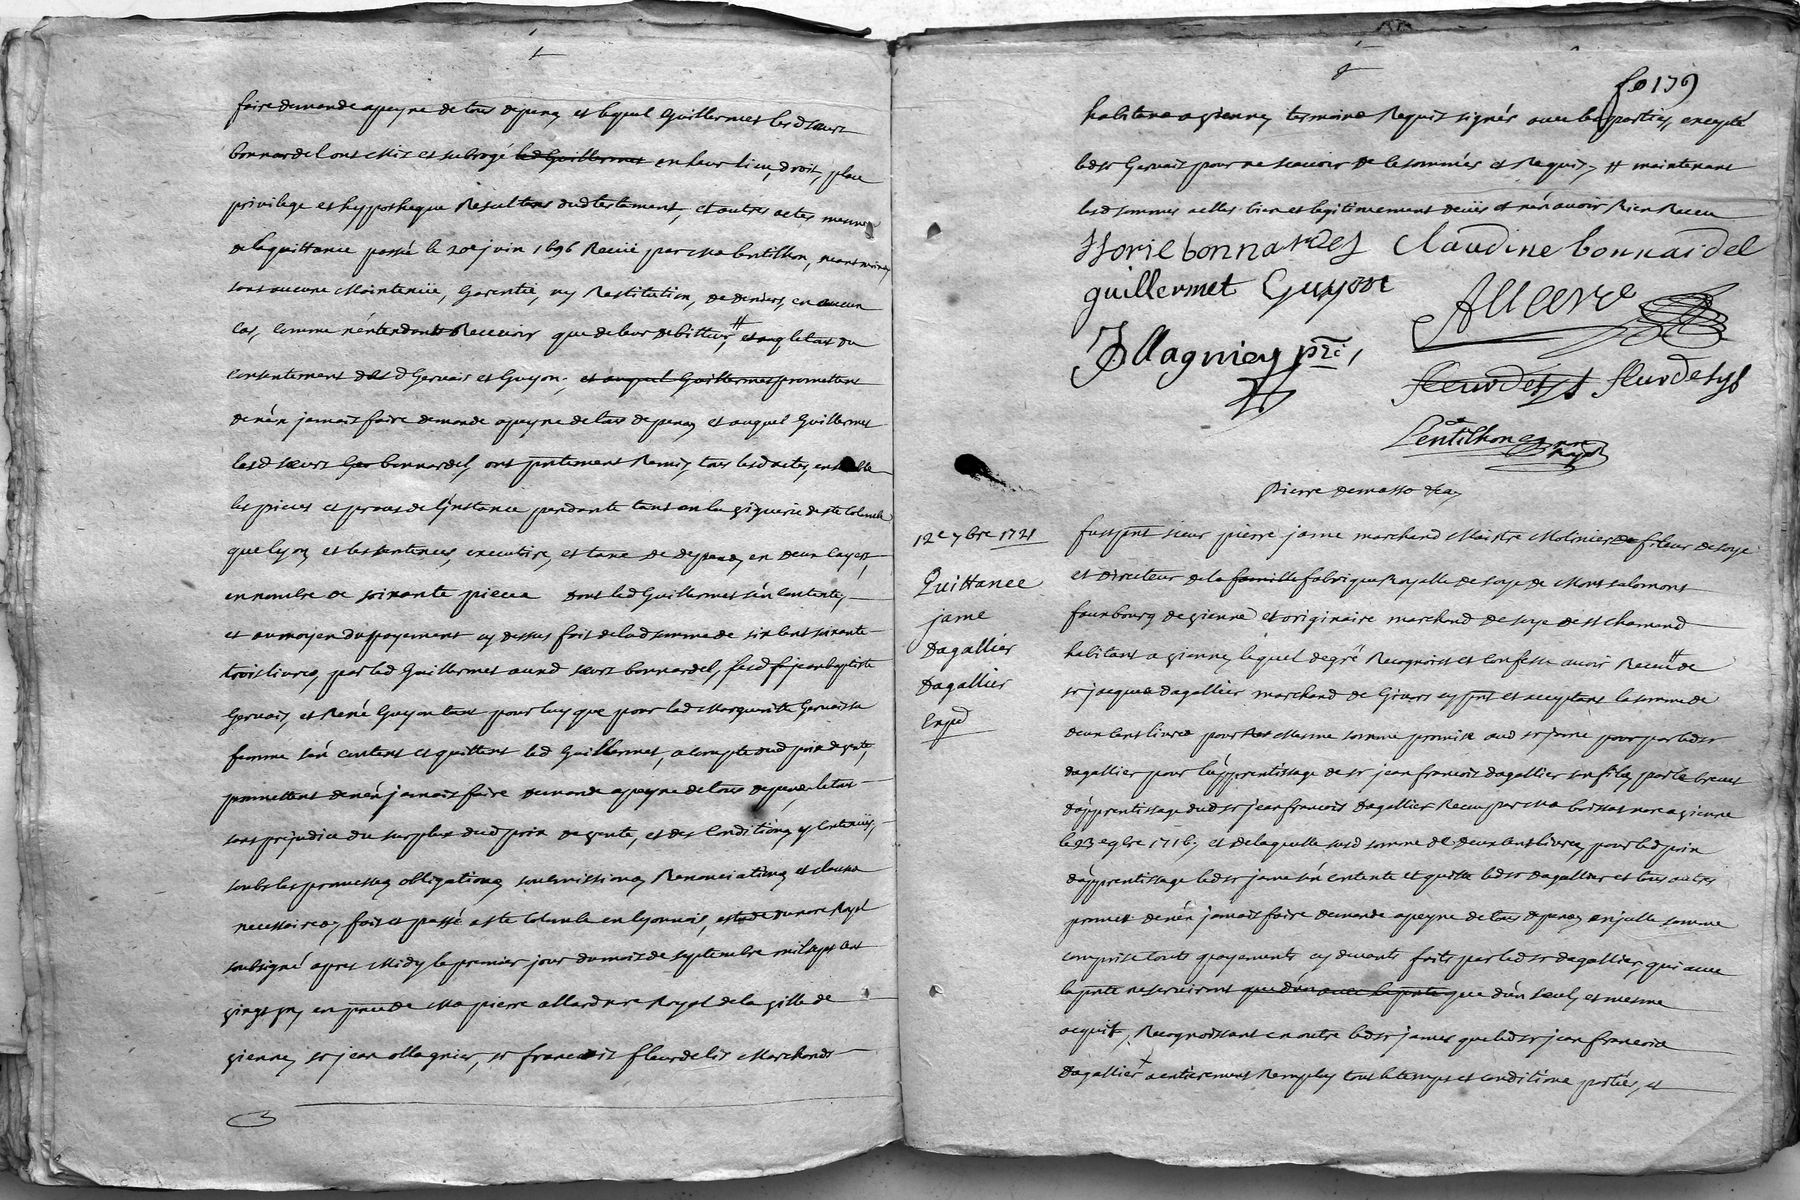 faire demande a peyne de tous depens et lequel Guillermet lesd sœurs
bonnardel ont mis et subrogé led Guillermet en leur lieu, droit, place
privilege et hypotheque Resultans dud testament, et autres actes mesme
de la quittance passé le 20e juin 1696 Receüe par Me Lentilhon, neantmoins
sans aucune Maintenüe, Garentie, ny Restitution, de deniers, en aucun
cas, comme n'entendant Recevoir que de leur debitteur, et auq le tout du
consentement desd Gervais et Guyon, et auquel Guillermet promettent
de n'en jamais faire demande a peyne de tous depens et auquel Guillermet
lesd sœurs bonnardel, ont puntement Remis, tous lesd actes, ensemble
les pieces et proces de l'instance pendante tant en la viguerie de Ste Colombe
que Lyon et les sentences, executoire, et taxe de depens en deux cayers,
en nombre de soixante pieces dont led Guillermet s'en contente,
et au moyen du payement cy dessus fait de lad somme de six cent soixante
trois livres, par led Guillermet ausd sœurs bonnardel, lesd jean baptiste
Gervais, et René Guyon tant pour luy que pour lad Marguerite Gervais sa
femme s'en contents et quittent led Guillermet, a compte dud prix de vente,
promettent de n'en jamais faire demande a peyne de tous depens, le tout
sans prejudice du surplus dud prix de vente, et des Conditions y Contenües,
soubs les promesses obligations soubmissions Renonciations et clauses
necessaires, fait et passé a Ste Colombe en lyonnois, estude du nore Royal
soubsigné apres Midy le premier jour du mois de septembre mil sept cent
vingt un en pnce de Me pierre allard nre Royal de la ville de
vienne, sr jean Magnier, sr francois fleurdelis Marchands
fo 179
habitans a vienne tesmoins Requis signés avec les parties, excepté
led sr Gervais pour ne scavoir de le sommés et Requis, # maintenant
lesd sommes a elles bien et legitimement deües et n'en avoir Rien Receu
bonnardel Claudine bonnardel
guillermet Guyon
Allard
JMagnien pnt
fleurdelys fleurdelys
Lentilhon
nre
Royal
Pierre
12e 7bre 1721
Quittance
jame
Dagallier
Dagallier
Exped
fust pnt sieur pierre jame marchand Maistre Molinier de fileur de soye
et directeur de la famille fabrique Royalle de soye de Mont salomont
fauxbourg de vienne et originaire marchand de soye de st chamond
habitant a vienne lequel de gré Recognoist et Confesse avoir Receu # de
sr jacques Dagallier marchand de Givors cy pnt et acceptant la somme de
deux cent livres pour mesme somme promise aud sr jame pour par led sr
Dagallier pour l'apprentissage de sr jean francois Dagallier son fils, par le brevet
d'apprentissage dud sr jean francois Dagallier Receu par Me boissat nore a vienne
le 23e 9bre 1716, et de laquelle susd somme de deux cent livres, pour led prix
d'apprentissage led sr jame s'en contente et quitte led sr Dagallier et tous autres
promet de n'en jamais faire demande a peyne de tous depens en jcelle somme
comprise touts payements cy devants faits par led sr Dagallier, qui avec
la pnte ne serviront que d'un avec la pnte que d'un seul, et mesme
acquit, Recognoissant en outre led sr james que led sr jean francois
Dagallier a entierement Remply tout le temps et conditions portés, et